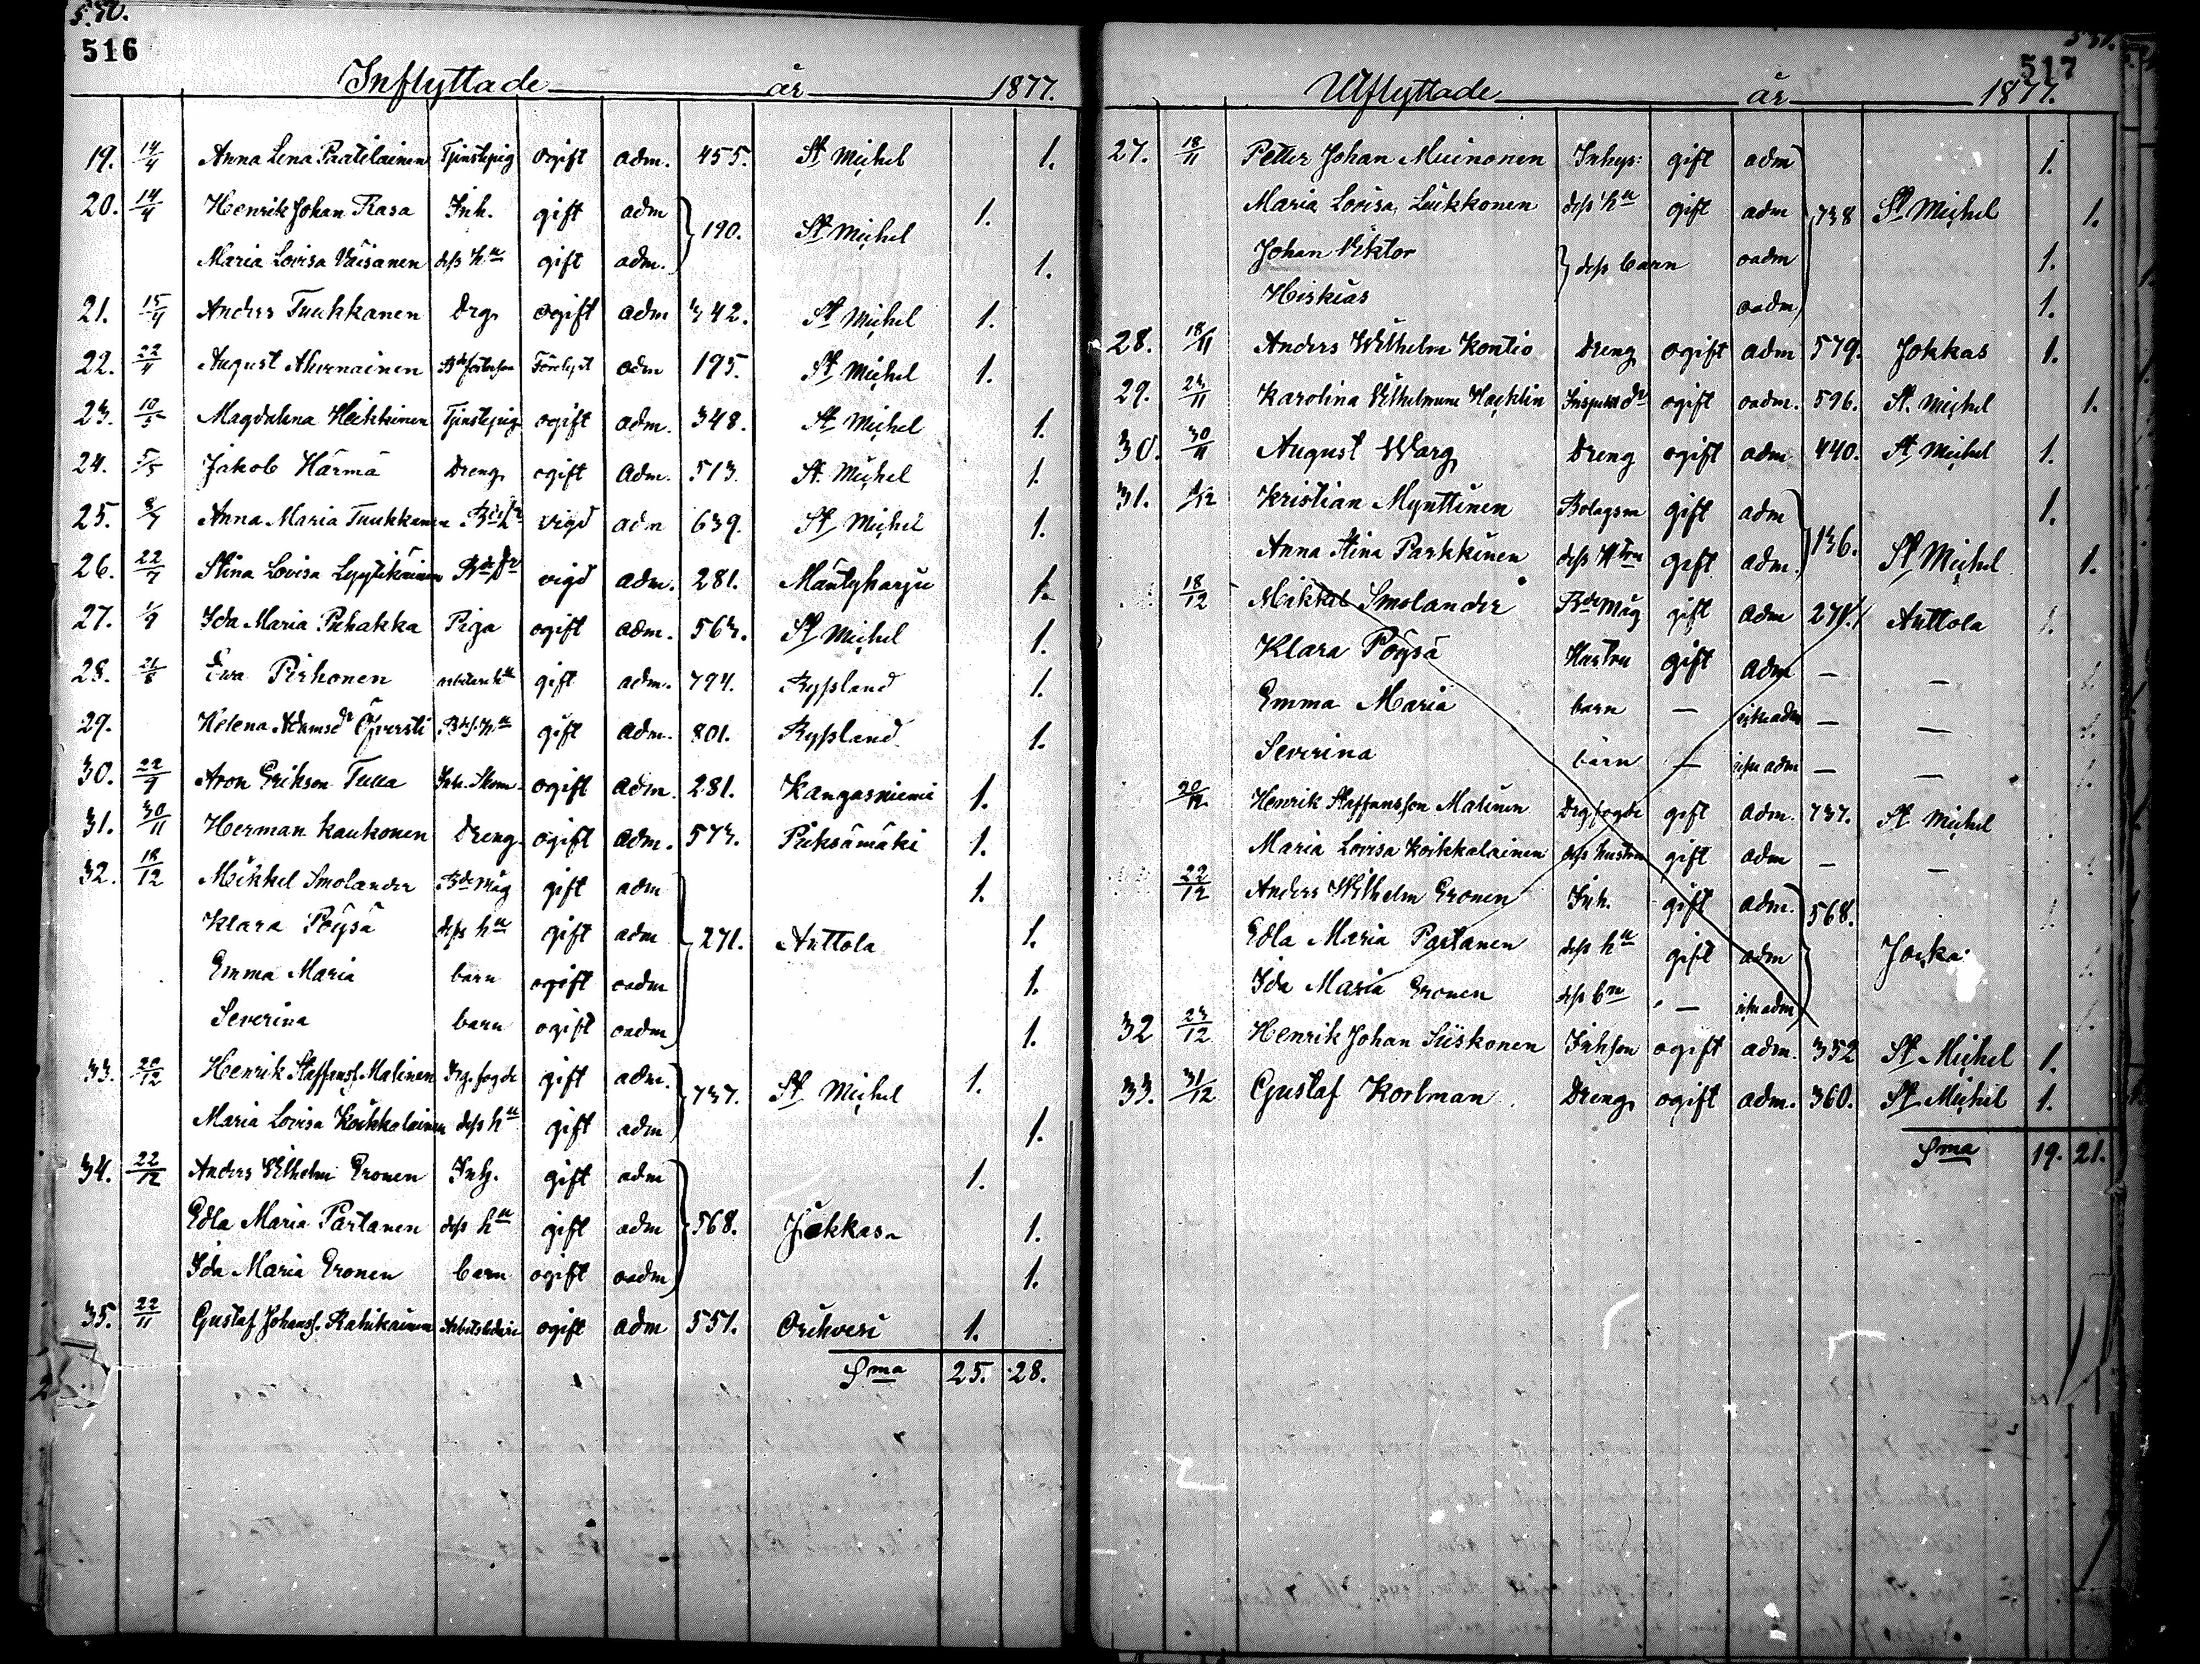 516
Inflyttade år 1877.
19. 14/4 Anna Lena Paatelainen Tjenstepig ogift adm. 455. St Michel 1.
20. 14/4 Henrik Johan Rasa Inh. gift adm 190. St Michel 1.
Maria Lovisa Väisänen dess hu gift adm. 1.
21. 15/4 Anders Tuukkanen Drg. ogift adm 342. St Michel 1.
22. 22/4 August Ahvenainen adm 195. St Michel 1.
23. 10/5 Magdalena Heikkinen Tjenstepig ogift adm. 348. St Michel 1.
24. 5/5 Jakob Härmä Dreng ogift adm. 513. St. Michel 1.
25. Anna Maria Tuukkanen vigd adm 639. St Michel 1.
26. 22/7 Stina Lovisa Lyytikäinen vigd adm. 281. Mäntyharju 1.
27. 1/9 Ida Maria Puhakka Piga ogift adm. 563. St Michel 1.
28. 21/8 Eva Pirhonen gift adm. 794. Ryssland 1.
29. Helena gift adm. 801. Ryssland 1.
30. 22/9 Aron Erikson Tulla ogift adm. 281. Kangasniemi 1.
31. 30/11 Herman Kaukonen Dreng ogift adm. 573. Pieksämäki 1.
32. 18/12 Mikkel Smolander Bde måg gift adm 271. Anttola 1.
Klara Pöysä dess hu gift adm 1.
Emma Maria barn ogift oadm 1.
Severina barn ogift oadm 1.
33. 20/12 Henrik Staffanss. Malinen Drg. fogde gift adm. 737. St Michel 1.
Maria Lovisa Koikkalainen dess hu gift adm 1.
34. 22/12 Anders Vilhelm Eronen Inh. gift adm 568. Jokkas 1.
Edla Maria Partanen dess hu gift adm 1.
Ida Maria Eronen barn ogift oadm 1.
35. 22/11 Gustaf Johanss. Rahikainen ogift adm 551. Orihvesi 1.
Sma 25. 28.
517
Utflyttade år 1877.
27. 18/11 Petter Johan Muinonen Inhys: gift adm 738 St Michel 1.
Maria Lovisa Liukkonen dess hu gift adm 1.
Johan Viktor dess barn oadm 1.
Hiskias oadm 1.
28. 18/11 Anders Wilhelm Kontio Dreng ogift adm 579. Jokkas 1.
29. 23/11 Karolina Vilhelmina Häcklin ogift oadm. 596. St. Michel 1.
30. 30/11 August Warg Dreng ogift adm 440. St Michel 1.
31. Kristian Mynttinen Bolagsm gift adm 136. St Michel 1.
Anna Stina Parkkinen dess Hstru gift adm. 1.
18/12 Mikkel Smolander Bde måg gift adm 271. Anttola 1.
Klara Pöysä Hustru gift adm — — 1.
Emma Maria barn — — — 1.
Severina barn — — — 1.
20/12 Henrik Staffansson Malinen Drg fogde gift adm. 737. St Michel
Maria Lovisa Koikkalainen dess hustru gift adm — —
22/12 Anders Wilhelm Eronen Inh. gift adm. 568. Jocka
Edla Maria Partanen dess hu gift adm
Ida Maria Eronen dess bn —
32 23/12 Henrik Johan Siiskonen Inhson ogift adm. 352 St Michel 1.
33. 31/12 Gustaf Kortman Dreng ogift adm. 360. St Michel 1.
Sma 19. 21.